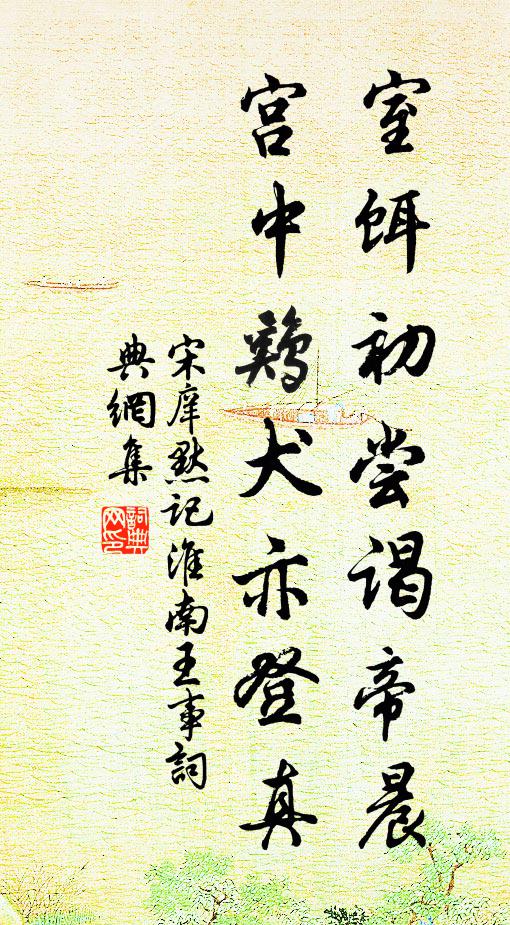 室餌初尝谒帝晨
宫中鷄犬亦登真
宋庠默记淮南王事詞
典網集
詞典网印